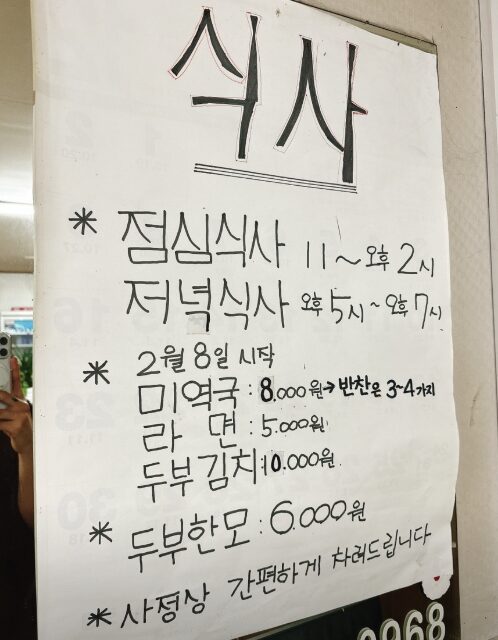 식사
* 점심식사 11~오후 2시
저녁식사 오후 5시~오후 7시
* 2월 8일 시작
미역국 : 8.000원→반찬은 3~4가지
라 면 : 5.000원
두부김치:10.000원
* 두부한모 : 6.000원
* 사정상 간편하게 차려드립니다
0968